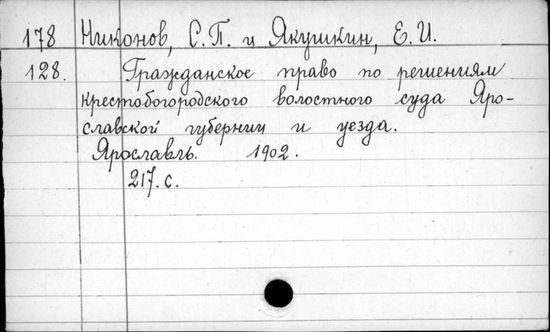 178 Никонов, С.П. и Якушкин, Е.И.
128. Гражданское право по решениям
Крестобогородского волостного суда Яро-
славской губернии и уезда.
Ярославль. 1902.
217. с.